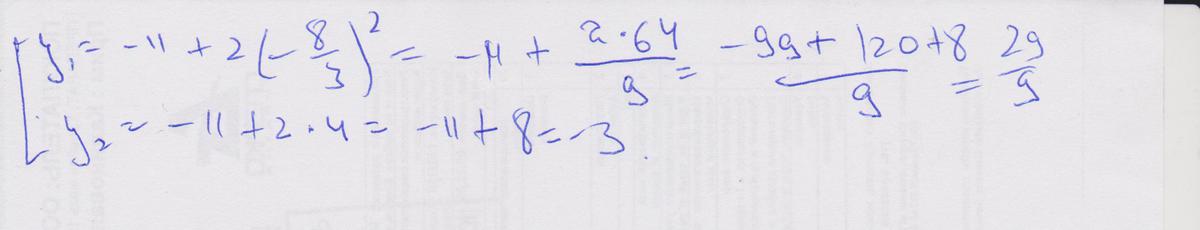 y₁ = -11 + 2(-8/3)² = -11 + 2·64/9 = -99 + 120+8/9 = 29/9
y₂ = -11 + 2·4 = -11 + 8 = -3.